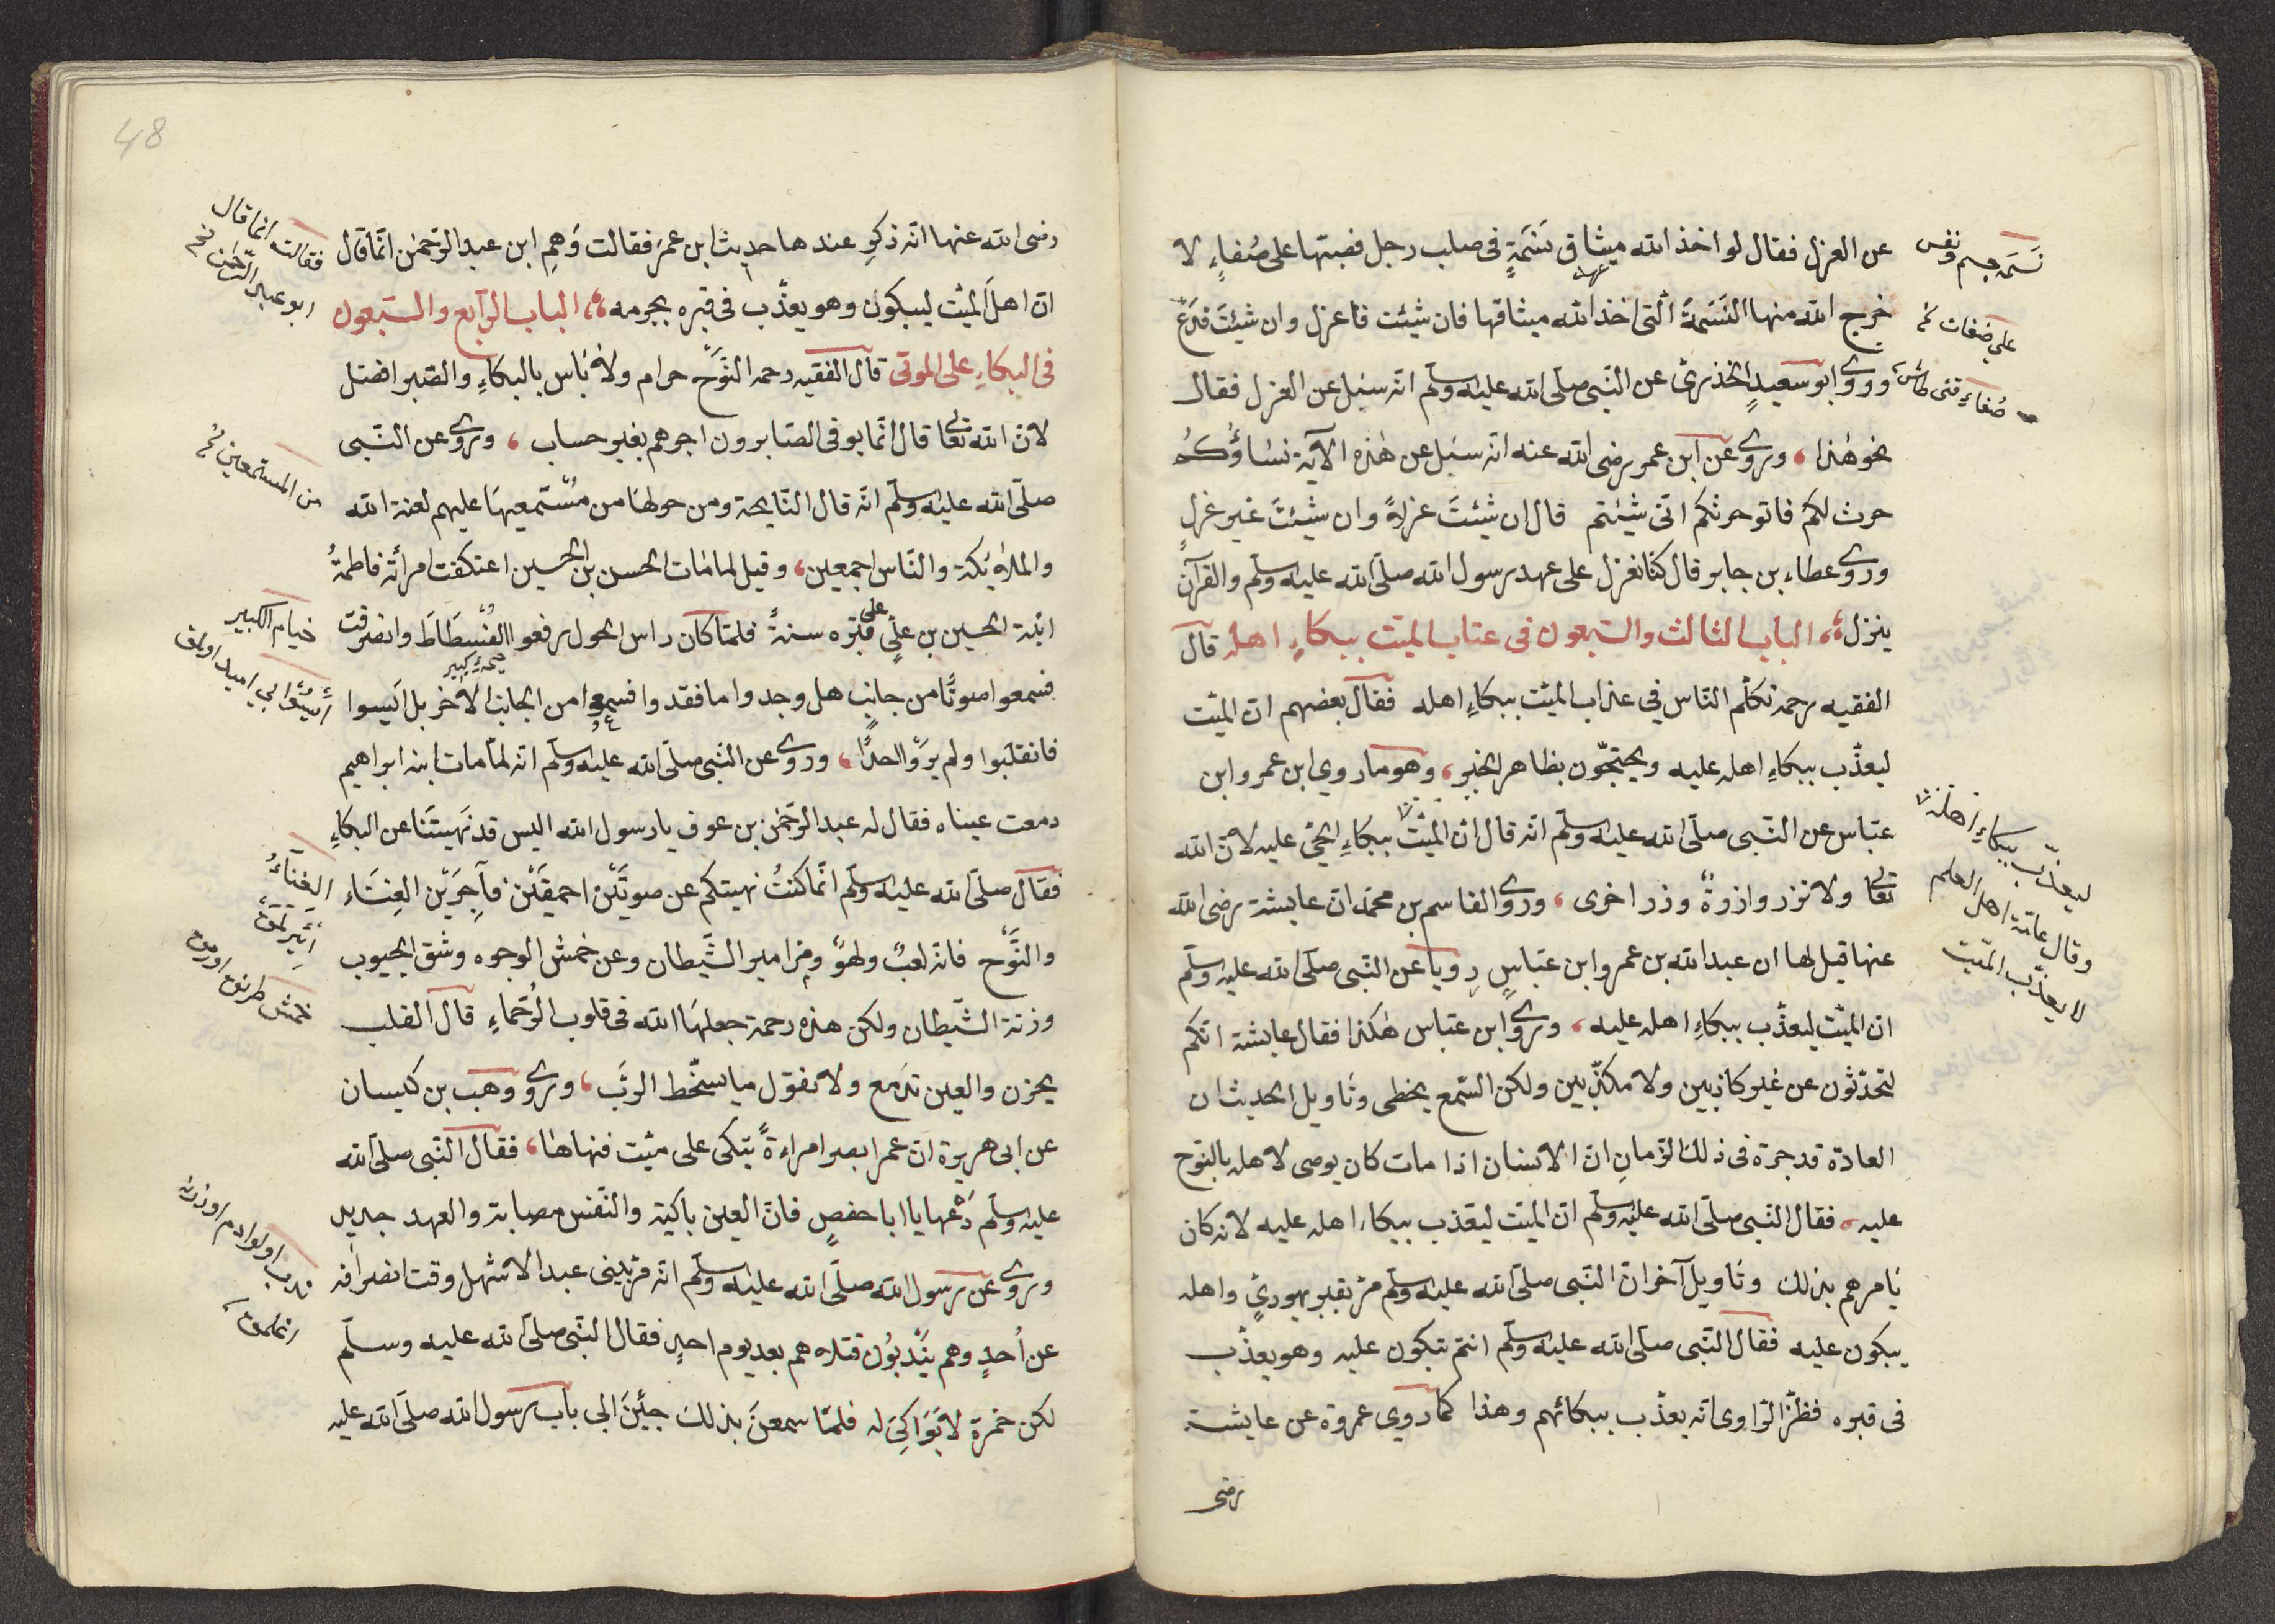 عن العزل فقال لو اخذ الله ميثاق نسَمَةٍ فى صلب رجل فصبّها على صُفاءٍ لا
خرج الله منها النَسَمَةَ الّتى اخذ الله ميثاقها فان شيئت فاعزل وان شيئتَ فدَعْ
وروى ابو سعيدٍ الخذرىّ عن النّبى صلّى الله عليه وسلّم انّه سئل عن العزل فقال
نحو هٰذا، وروى عن ابن عمر رضى الله عنه انّه سئل عن هٰذه الآية نساؤكُم
حرث لكم فاتو حرثكم انّى شيئتم قال ان شيئتَ عزلاً وان شيئتَ غير عزلٍ
وروى عطاء بن جابر قال كنّا نعزل على عهد رسول الله صلّى الله عليه وسلّم والقرآن
ينزل، الباب الثالث والسّبعون فى عذاب الميّت ببكاءِ اهله قال
الفقيه رحمه تكلّم النّاس في عذاب الميّت ببكاءِ اهله فقال بعضهم انّ الميّت
ليعذّب ببكاءِ اهله عليه ويحتجّون بظاهر الخبر، وهو ما روي ابن عمر وابن
عبّاس عن النّبى صلّى الله عليه وسلّم انّه قال انّ الميّت ببكاءِ الحىّ عليه لانّ الله
تعالى ولا تزر وازرةٌ وزر اخرى، وروى القاسم بن محمّد ان عايشة رضى الله
عنها قيل لها ان عبد الله بن عمر وابن عبّاسٍ رويا عن النّبى صلّى الله عليه وسلّم
ان الميّت ليعذّب ببكاءِ اهله عليه، وروى ابن عبّاس هٰكذا فقال عايشة انّكم
لتحدّثون عن غير كاذبين ولا مكذّبين ولكن السّمع يخطى وتاويل الحديث ان
العادة قد جرة فى ذلك الزّمان انّ الانسان اذا مات كان يوصى لاهله بالنوح
عليه، فقال النّبى صلّى الله عليه وسلّم انّ الميّت ليعذب ببكاء اهله عليه لانه كان
يامرهم بذلك وتاويل آخر انّ النّبى صلّى الله عليه وسلّم مرّ بقبر يهوديٍّ واهله
يبكون عليه فقال النّبى صلّى الله عليه وسلّم انتم تبكون عليه وهو يعذّب
فى قبره فظنّ الرّاوى انه يعذّب ببكائهم وهذا كما روي عروة عن عايشة
رضى
نسَمه جسم ونفس
على صفات نخ
ليعذّب ببكاءِ اهله
وقال عامّة اهل العلم
لا يعذّب الميّت
48
رضى الله عنها انّه ذكر عندها حديث ابن عمرَ فقالت وَهِمِ ابن عبد الرّحمٰن انّما قال
انّ اهلَ الميّت ليبكون وهو يعذّب فى قبره بجرمه، الباب الرّابع والسّبعون
فى البكاءِ على الموتى قال الفقيه رحمه النّوح حرام ولا باس بالبكاءِ والصّبر افضل
لانّ الله تعالى قال انّما يوفى الصّابرون اجرهم بغير حساب، وروى عن النّبى
صلّى الله عليه وسلّم انّه قال النّايحة ومن حولها من مُسْتَمعيها عليهم لعنة الله
والملائكة والنّاس اجمعين، وقيل لما مات الحسن بن الحسين اعتكفت امرأته فاطمةُ
ابنة الحسين بن عليٍّ على قبره سنةً فلمّا كان راس الحول رفعوا الفُسْطَاطَ وانصرفت
فسمعوا صوتًا من جانبٍ هل وجدوا ما فقدوا فسمعوا من الجانب الآخر بل ايَسوا
فانقلبوا ولم يروّا احدًا، وروى عن النّبى صلّى الله عليه وسلّم انّه لمّا مات ابنه ابراهيم
دمعت عيناه فقال له عبد الرّحمٰن بن عوف يا رسول الله اليس قد نَهيتَنا عن البكاءِ
فقال صلّى الله عليه وسلّم انّما كنتُ نهيتكم عن صوتَيْن احمقَيْن فآجِرَيْن الغِنَاء
والنَّوْح فانه لعبٌ ولهوٌ ومزامير الشّيطان وعن خمش الوجوه وشق الجيوب
وزنة الشّيطان ولكن هذه رحمة جعلها الله فى قلوب الرُّحماءِ قال القلب
يحزن والعين تدمع ولا نقول ما يسخّط الرّبّ، وروى وهب بن كيسان
عن ابى هريرة انّ عمر ابصر امراءةً تبكى على ميّت فنهاها، فقال النّبى صلّى الله
عليه وسلّم دَعْها يا ابا حفصٍ فانّ العين باكية والنّفس مصابة والعهد جديد
وروى عن رسول الله صلّى الله عليه وسلّم انّه مرّ ببنى عبد الاشهل وقت انصرافه
عن اُحدٍ وهم يَنْدبُون قتلاهم بعد يوم احدٍ فقال النّبى صلّى الله عليه وسلّم
لكن حمزة لا بَوَاكِىَ له فلمّا سمعنَ بذلك جئِنَ الى باب رسول الله صلّى الله عليه
فقالت انما قال
ابو عبد الرّحمٰن نخ
من المستمعين نخ
خيام الكبير
الغنآءُ